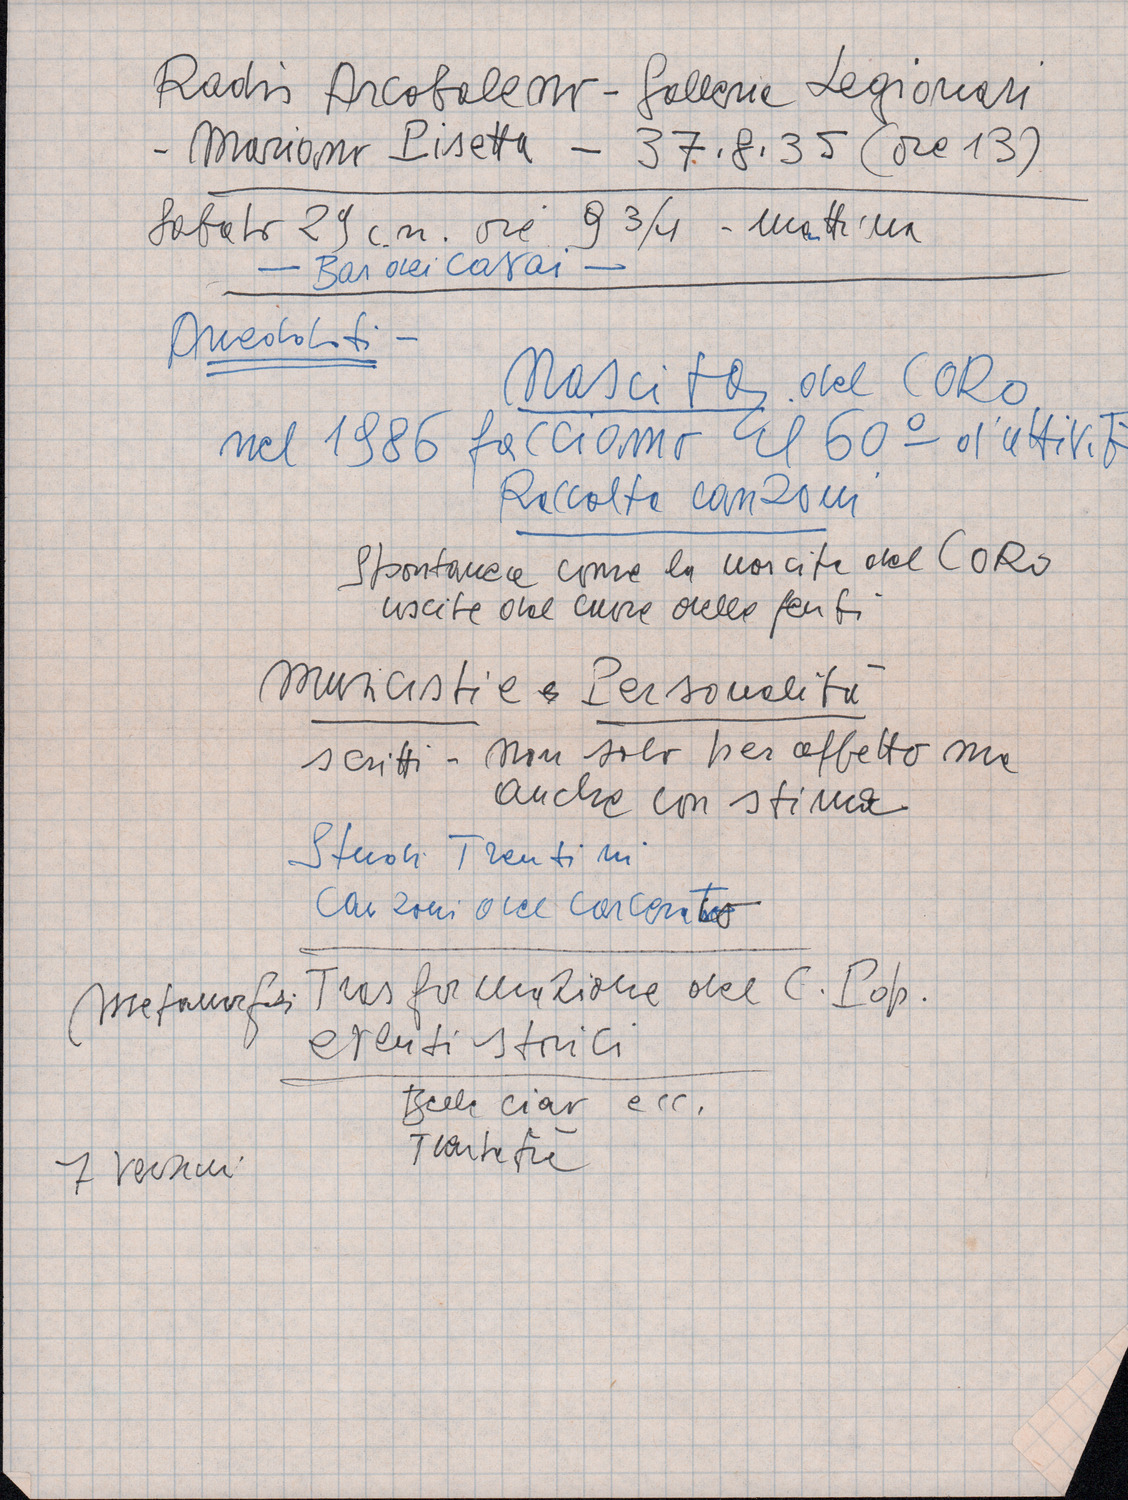 Radio Arcobaleno - Galleria Legionari
- Mariano Pisetta - 37.8.35 (ore 13)
Sabato 29 c.m. ore 9 3/4 - mattina
- Bar dei Cavai -
Aneddoti -
Nascita del CORO
nel 1986 facciamo il 60º d'attività
Raccolta canzoni
Spontanea come la nascita del CORO
uscite dal cuore delle genti
Musicisti e Personalità
scritti - non solo per affetto ma
anche con stima
Studi Trentini
Canzoni del carcerato
Metamorfosi Trasformazione del C. Pop.
eventi storici
Bella ciao ecc.
7 versioni